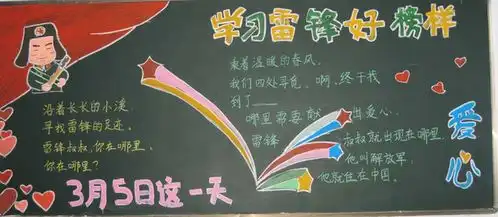 学习雷锋好榜样
沿着长长的小溪,
寻找雷锋的足迹.
雷锋叔叔,你在哪里,
你在哪里?
乘着温暖的春风,
我们四处寻觅、啊、终于找
到了——
哪里需要献 出爱心,
雷锋 叔叔就出现在哪里.
他叫解放军,
他就住在中国.
爱心
3月5日这一天